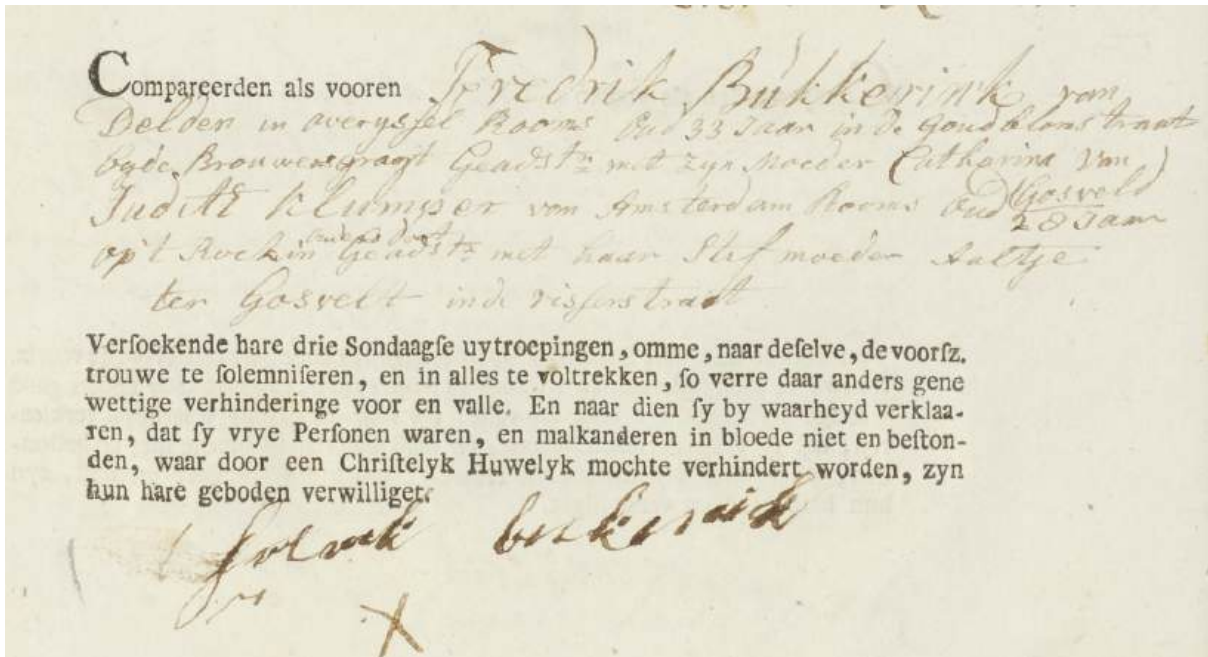 Compareerden als vooren Fredrik Bukkerink van
Delden in overyssel Rooms Oud 33 Jaar in de Goudblomstraat
byde Brouwersgragt Geadstr met zyn Moeder Catharina van
Gosveld
Judith Klumper van Amsterdam Rooms Oud 28 Jaar
op't Rockin Geadstr met haar Stefmoeder Aaltje
ter Gosvelt inde visserstraat
Verſoekende hare drie Sondaagſe uytroepingen, omme, naar deſelve, de voorſz.
trouwe te ſolemniſeren, en in alles te voltrekken, ſo verre daar anders gene
wettige verhinderinge voor en valle. En naar dien ſy by waarheyd verklaa-
ren, dat ſy vrye Perſonen waren, en malkanderen in bloede niet en beſton-
den, waar door een Chriſtelyk Huwelyk mochte verhindert worden, zyn
hun hare geboden verwilliget.